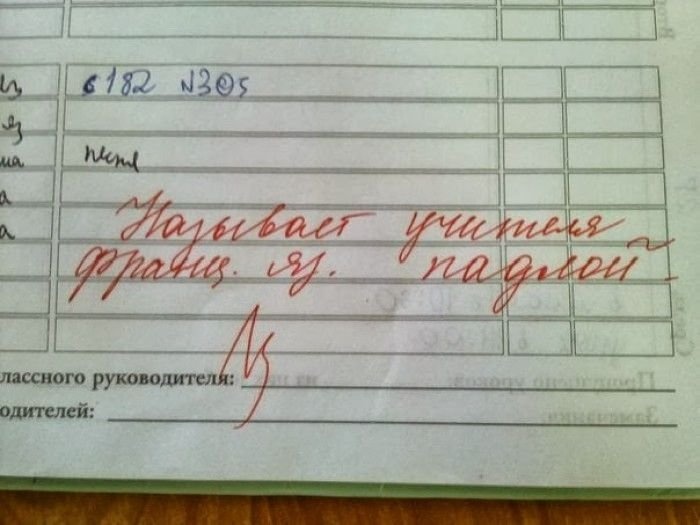 с 182 №305
яз
ма песня
а
а Называет учителя
франц. яз. падлой.
лассного руководителя:
одителей: